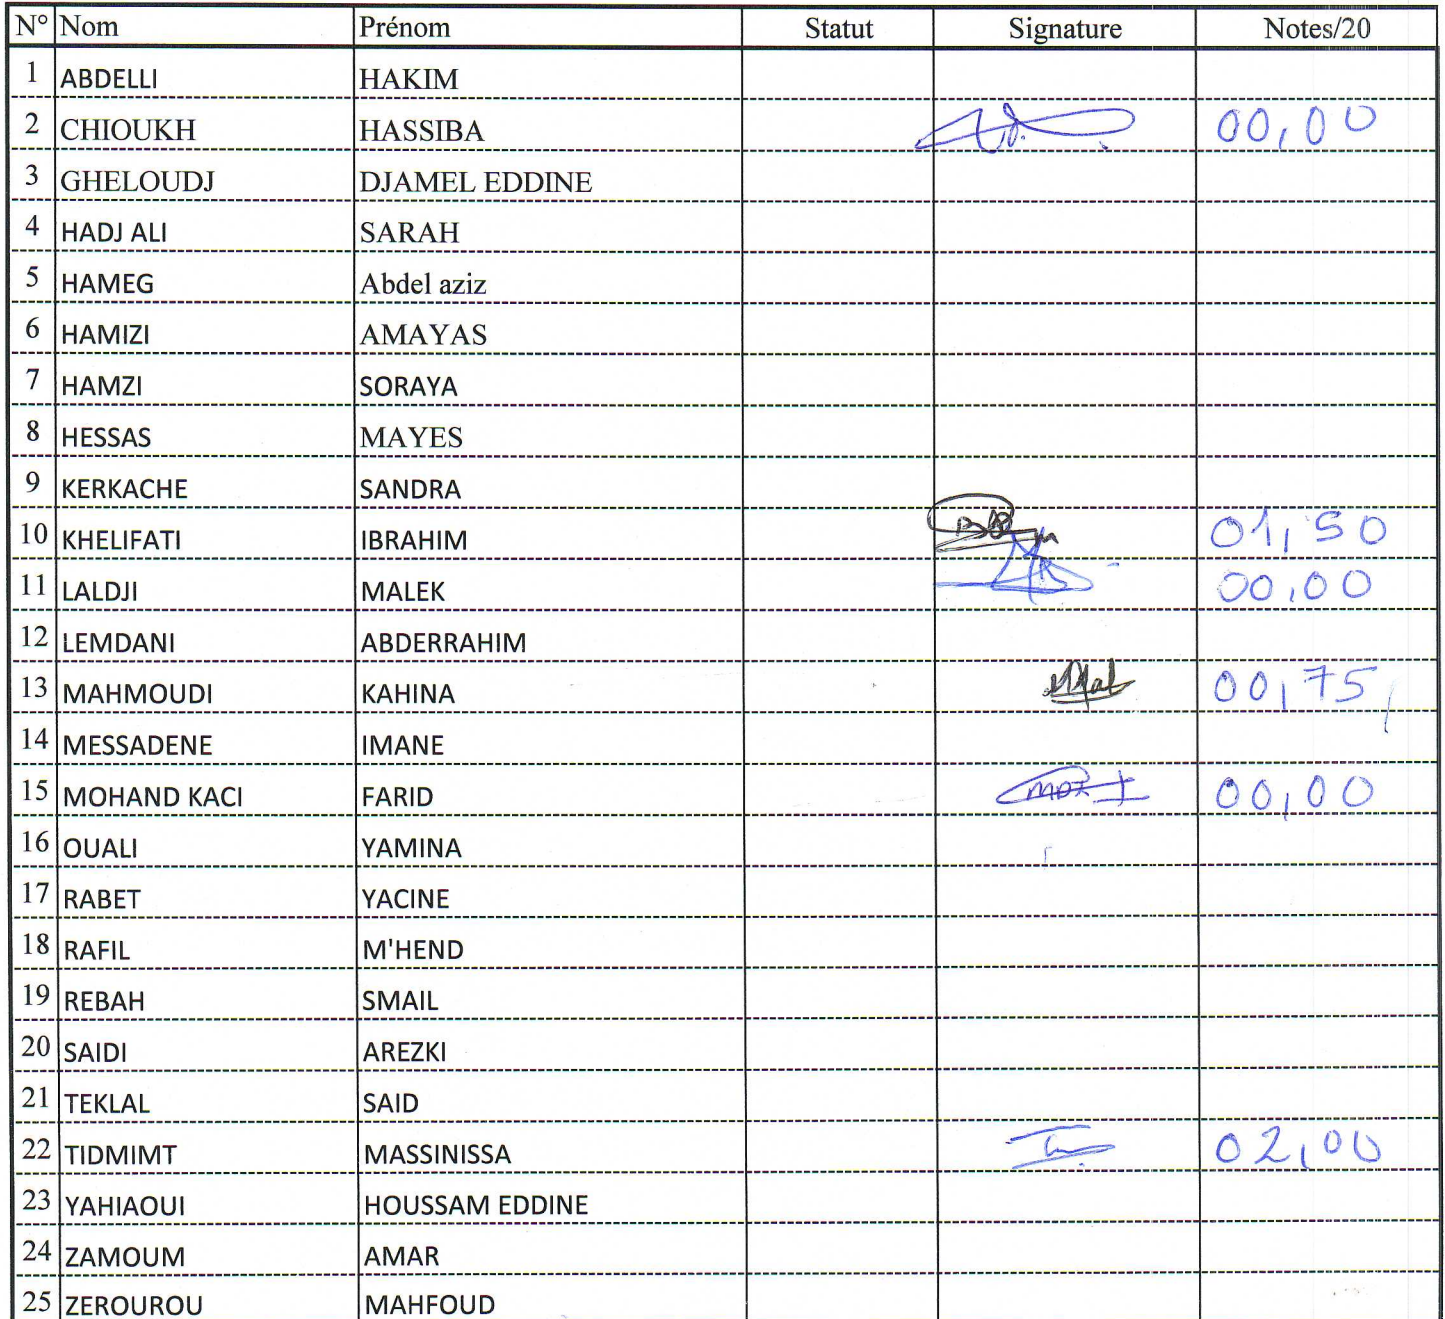 N° Nom Prénom Statut Signature Notes/20
1 ABDELLI HAKIM
2 CHIOUKH HASSIBA 00,00
3 GHELOUDJ DJAMEL EDDINE
4 HADJ ALI SARAH
5 HAMEG Abdel aziz
6 HAMIZI AMAYAS
7 HAMZI SORAYA
8 HESSAS MAYES
9 KERKACHE SANDRA
10 KHELIFATI IBRAHIM 01,50
11 LALDJI MALEK 00,00
12 LEMDANI ABDERRAHIM
13 MAHMOUDI KAHINA 00,75
14 MESSADENE IMANE
15 MOHAND KACI FARID 00,00
16 OUALI YAMINA
17 RABET YACINE
18 RAFIL M'HEND
19 REBAH SMAIL
20 SAIDI AREZKI
21 TEKLAL SAID
22 TIDMIMT MASSINISSA 02,00
23 YAHIAOUI HOUSSAM EDDINE
24 ZAMOUM AMAR
25 ZEROUROU MAHFOUD